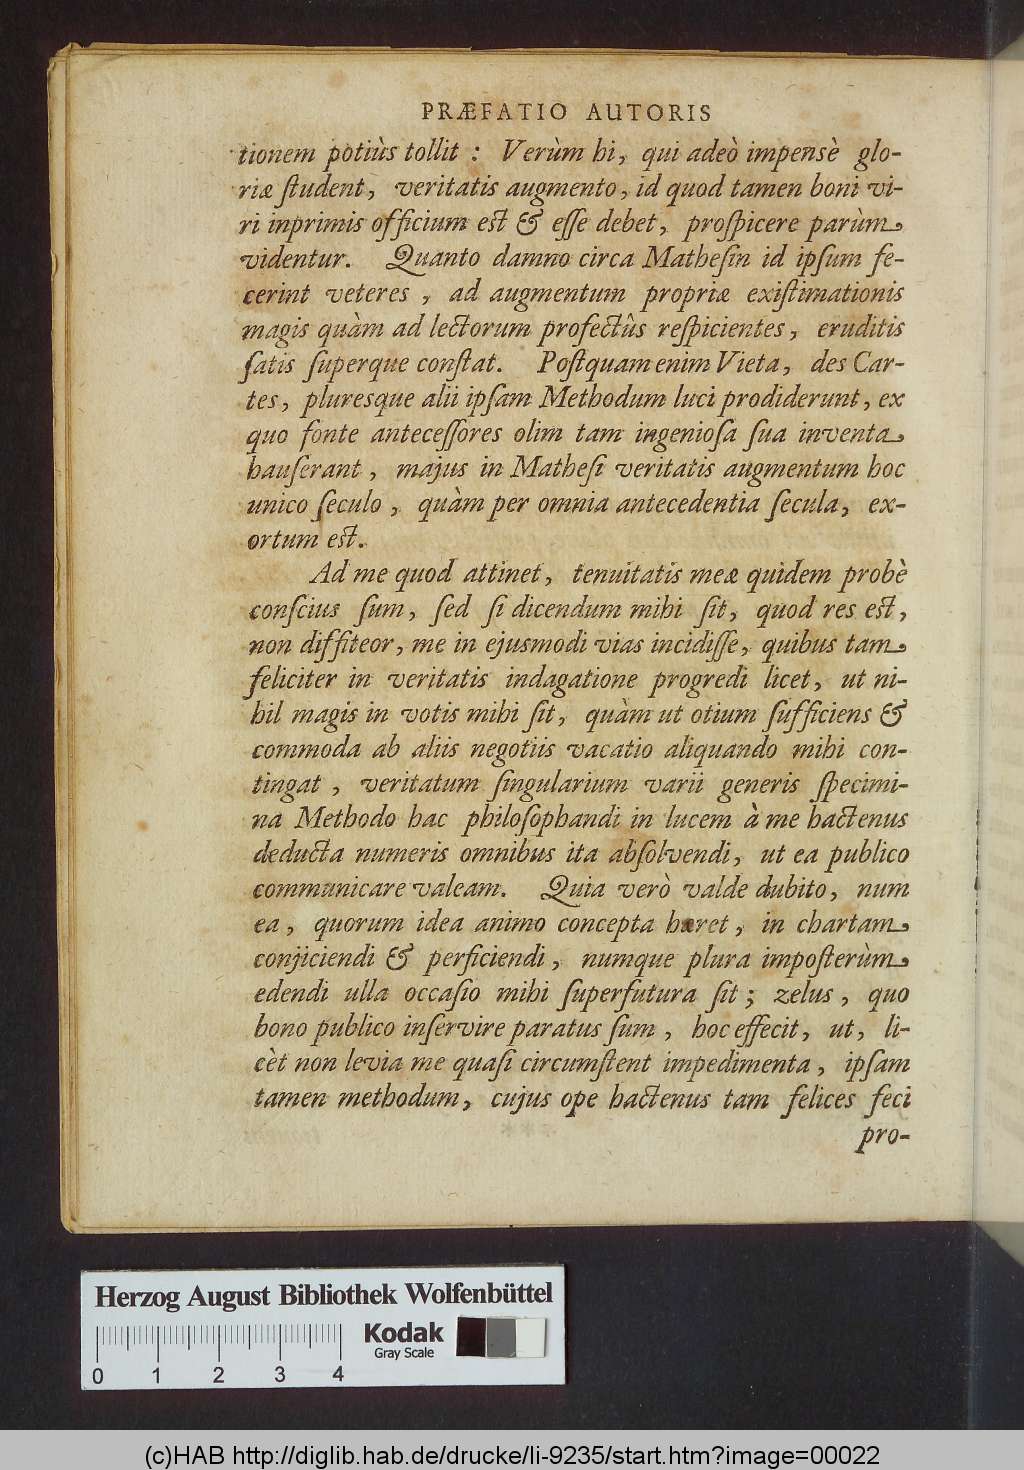 PRÆFATIO AUTORIS
tionem potiùs tollit : Verùm hi, qui adeò impensè glo-
riæ ſtudent, veritatis augmento, id quod tamen boni vi-
ri inprimis officium eſt & eſſe debet, proſpicere parùm
videntur. Quanto damno circa Matheſin id ipſum fe-
cerint veteres , ad augmentum propriæ exiſtimationis
magis quàm ad lectorum profectûs reſpicientes, eruditis
ſatis ſuperque conſtat. Poſtquam enim Vieta, des Car-
tes, pluresque alii ipſam Methodum luci prodiderunt, ex
quo fonte anteceſſores olim tam ingenioſa ſua inventa
hauſerant , majus in Matheſi veritatis augmentum hoc
unico ſeculo , quàm per omnia antecedentia ſecula, ex-
ortum eſt.
Ad me quod attinet, tenuitatis meæ quidem probè
conſcius ſum, ſed ſi dicendum mihi ſit, quod res eſt,
non diffiteor, me in ejusmodi vias incidiſſe, quibus tam
feliciter in veritatis indagatione progredi licet, ut ni-
hil magis in votis mihi ſit, quàm ut otium ſufficiens &
commoda ab aliis negotiis vacatio aliquando mihi con-
tingat , veritatum ſingularium varii generis ſpecimi-
na Methodo hac philoſophandi in lucem à me hactenus
deducta numeris omnibus ita abſolvendi, ut ea publico
communicare valeam. Quia verò valde dubito, num
ea, quorum idea animo concepta hæret, in chartam
conjiciendi & perficiendi, numque plura impoſterùm
edendi ulla occaſio mihi ſuperfutura ſit ; zelus , quo
bono publico inſervire paratus ſum , hoc effecit, ut, li-
cèt non levia me quaſi circumſtent impedimenta , ipſam
tamen methodum, cujus ope hactenus tam felices feci
pro-
Herzog August Bibliothek Wolfenbüttel
Kodak
Gray Scale
0 1 2 3 4
(c)HAB http://diglib.hab.de/drucke/li-9235/start.htm?image=00022